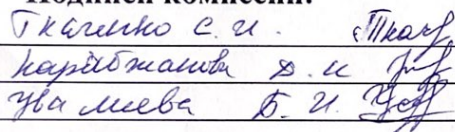 Подписи комиссии:
Ткаченко С. И. Ткач
Карабжанова Д. К
Увалиева Б. И.